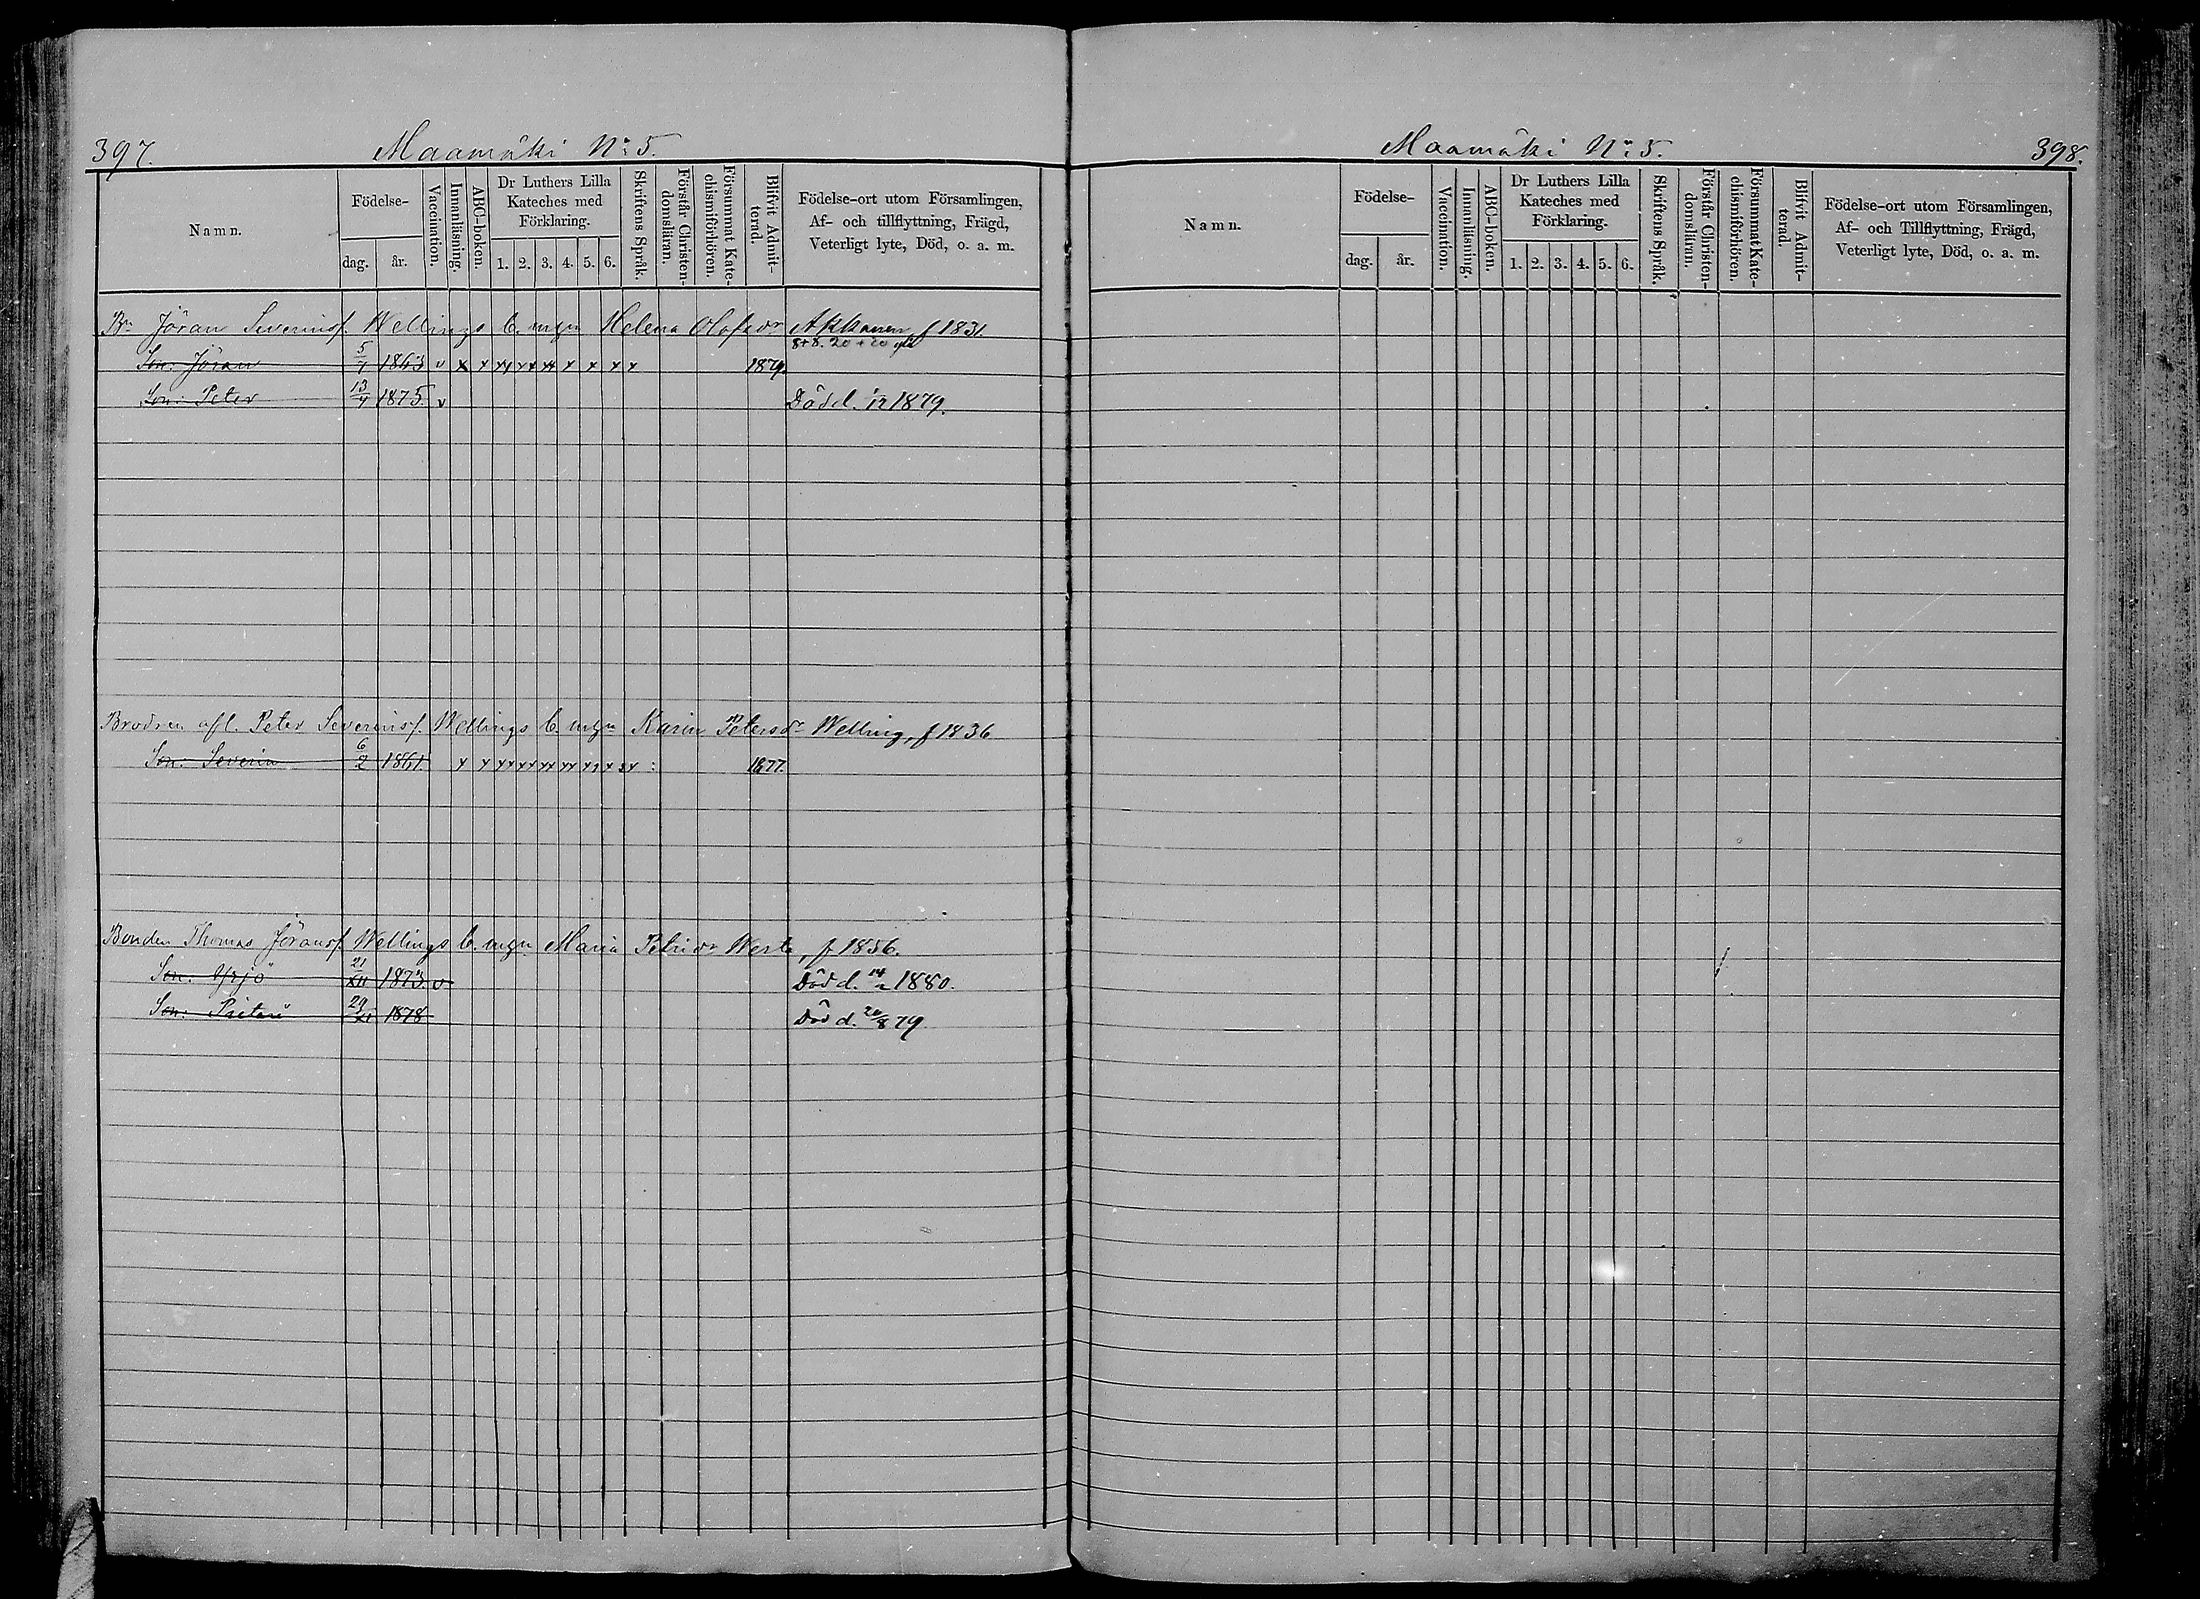 397.
Maamäki No 5.
Namn.
Födelse-
dag.
år.
Vaccination.
Innanläsning.
ABC-boken.
Dr Luthers Lilla
Kateches med
Förklaring.
1. 2. 3. 4. 5. 6.
Skriftens Språk.
Förstår Christen-
domsläran.
Försummat Kate-
chismiförhören.
Blifvit Admit-
terad.
Födelse-ort utom Församlingen,
Af- och tillflyttning, Frägd,
Veterligt lyte, Död, o. a. m.
Bn Jöran Severinsf. Wellings b. m. gn Helena Olofsdr Akkanen, f 1831.
Son: Jöran 5/7 1863 v x x xx xx xx x x x x 1879.
Son: Peter 13/7 1875. v Död d. 1879.
Brodren afl. Peter Severinsf. Wellings b. m. gn Karin Petersdr Welling, f 1836
Son: Severin 6/2 1861. x x xx xx xx xx x x 1877.
Bonden Thomas Jöransf. Wellings b. m. gn Maria Petridr f 1856.
Son: Yrjö 21/XII 1873. v Död d. 1880.
Son: Pietari 29/XI 1878 Död d. 20/8 79.
Maamäki No 5.
398.
Namn.
Födelse-
dag.
år.
Vaccination.
Innanläsning.
ABC-boken.
Dr Luthers Lilla
Kateches med
Förklaring.
1. 2. 3. 4. 5. 6.
Skriftens Språk.
Förstår Christen-
domsläran.
Försummat Kate-
chismiförhören.
Blifvit Admit-
terad.
Födelse-ort utom Församlingen,
Af- och Tillflyttning, Frägd,
Veterligt lyte, Död, o. a. m.